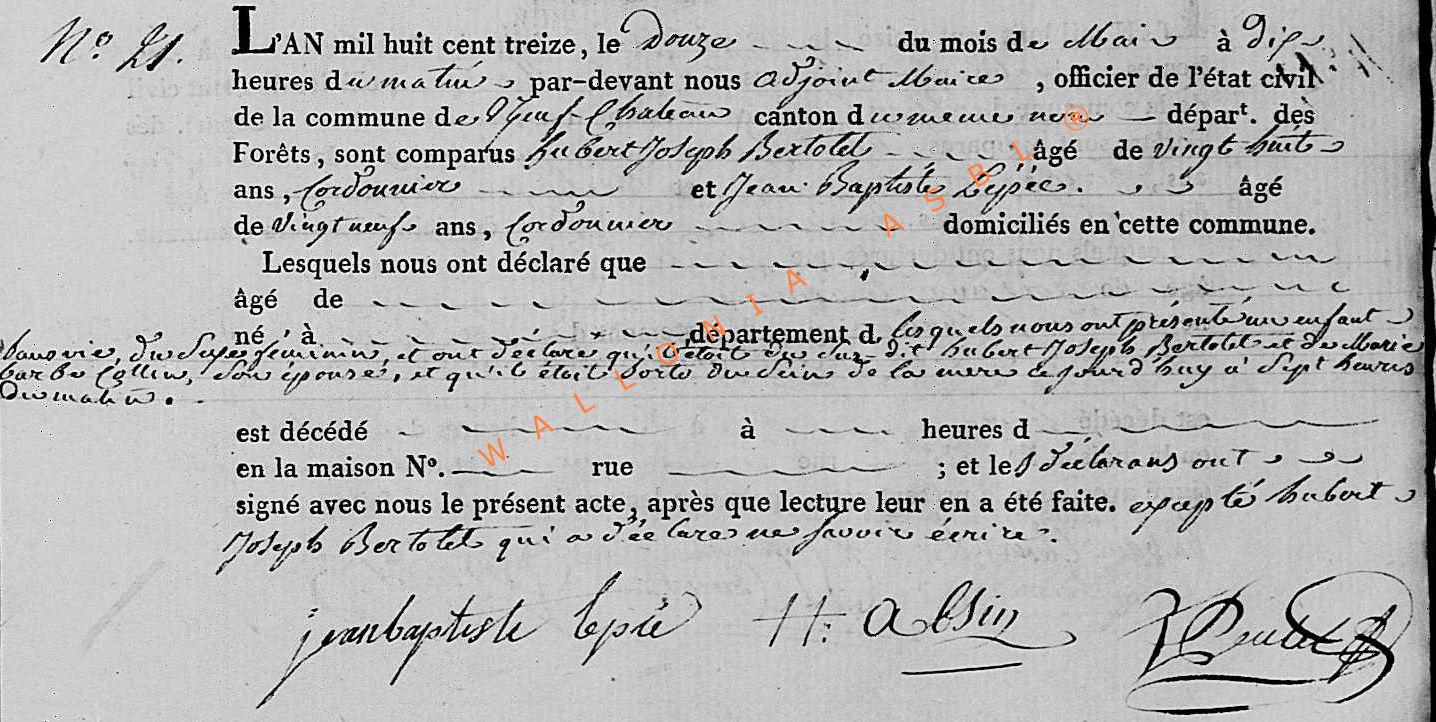 N.º 21.
L'AN mil huit cent treize, le Douze du mois de Mai à Dix
heures du matin par-devant nous adjoint Maire , officier de l'état civil
de la commune de Neuf-Chateau canton du meme nom départ. des
Forêts, sont comparus hubert Joseph Bertolet âgé de vingt huit
ans, Cordonnier et Jean Baptiste Lepiée. âgé
de vingt neuf ans, Cordonnier domiciliés en cette commune.
Lesquels nous ont déclaré que
âgé de
né à département d lesquels nous ont présenté un enfant
sans vie, du sexe feminin, et ont déclaré qu'il étoit du sus-dit hubert Joseph Bertolet et de Marie
barbe Collin, son épouse, et qu'il étoit sorti du sein de la mere ce jourd'huy à sept heures
du matin.
est décédé à heures d
en la maison Nº. rue ; et les déclarans ont
signé avec nous le présent acte, après que lecture leur en a été faite. excepté hubert
Joseph Bertolet qui a déclaré ne savoir écrire.
jeanbaptiste lepié H: absin
WALLONIA ASBL ®